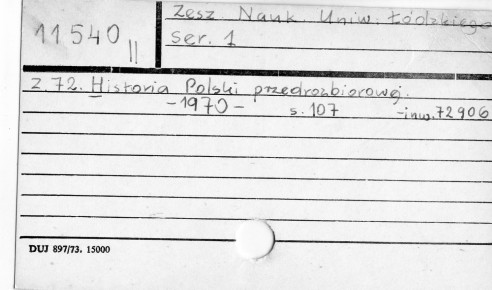 11540 II
Zesz. Nauk. Uniw. Łódzkiego
ser. 1
Z. 72. Historia Polski przedrozbiorowej.
-1970- s. 107 -inw. 72906
DUJ 897/73. 15000